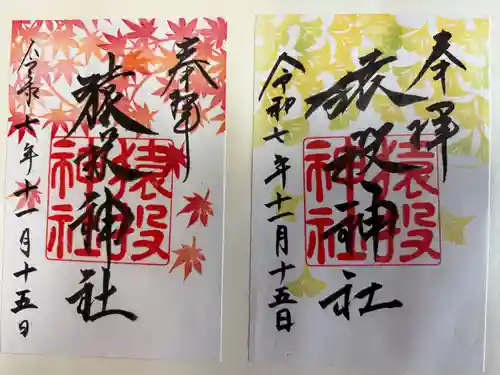 奉拝
猿投神社
猿投
神社
令和六年十一月十五日
奉拝
猿投神社
猿投
神社
令和七年十一月十五日